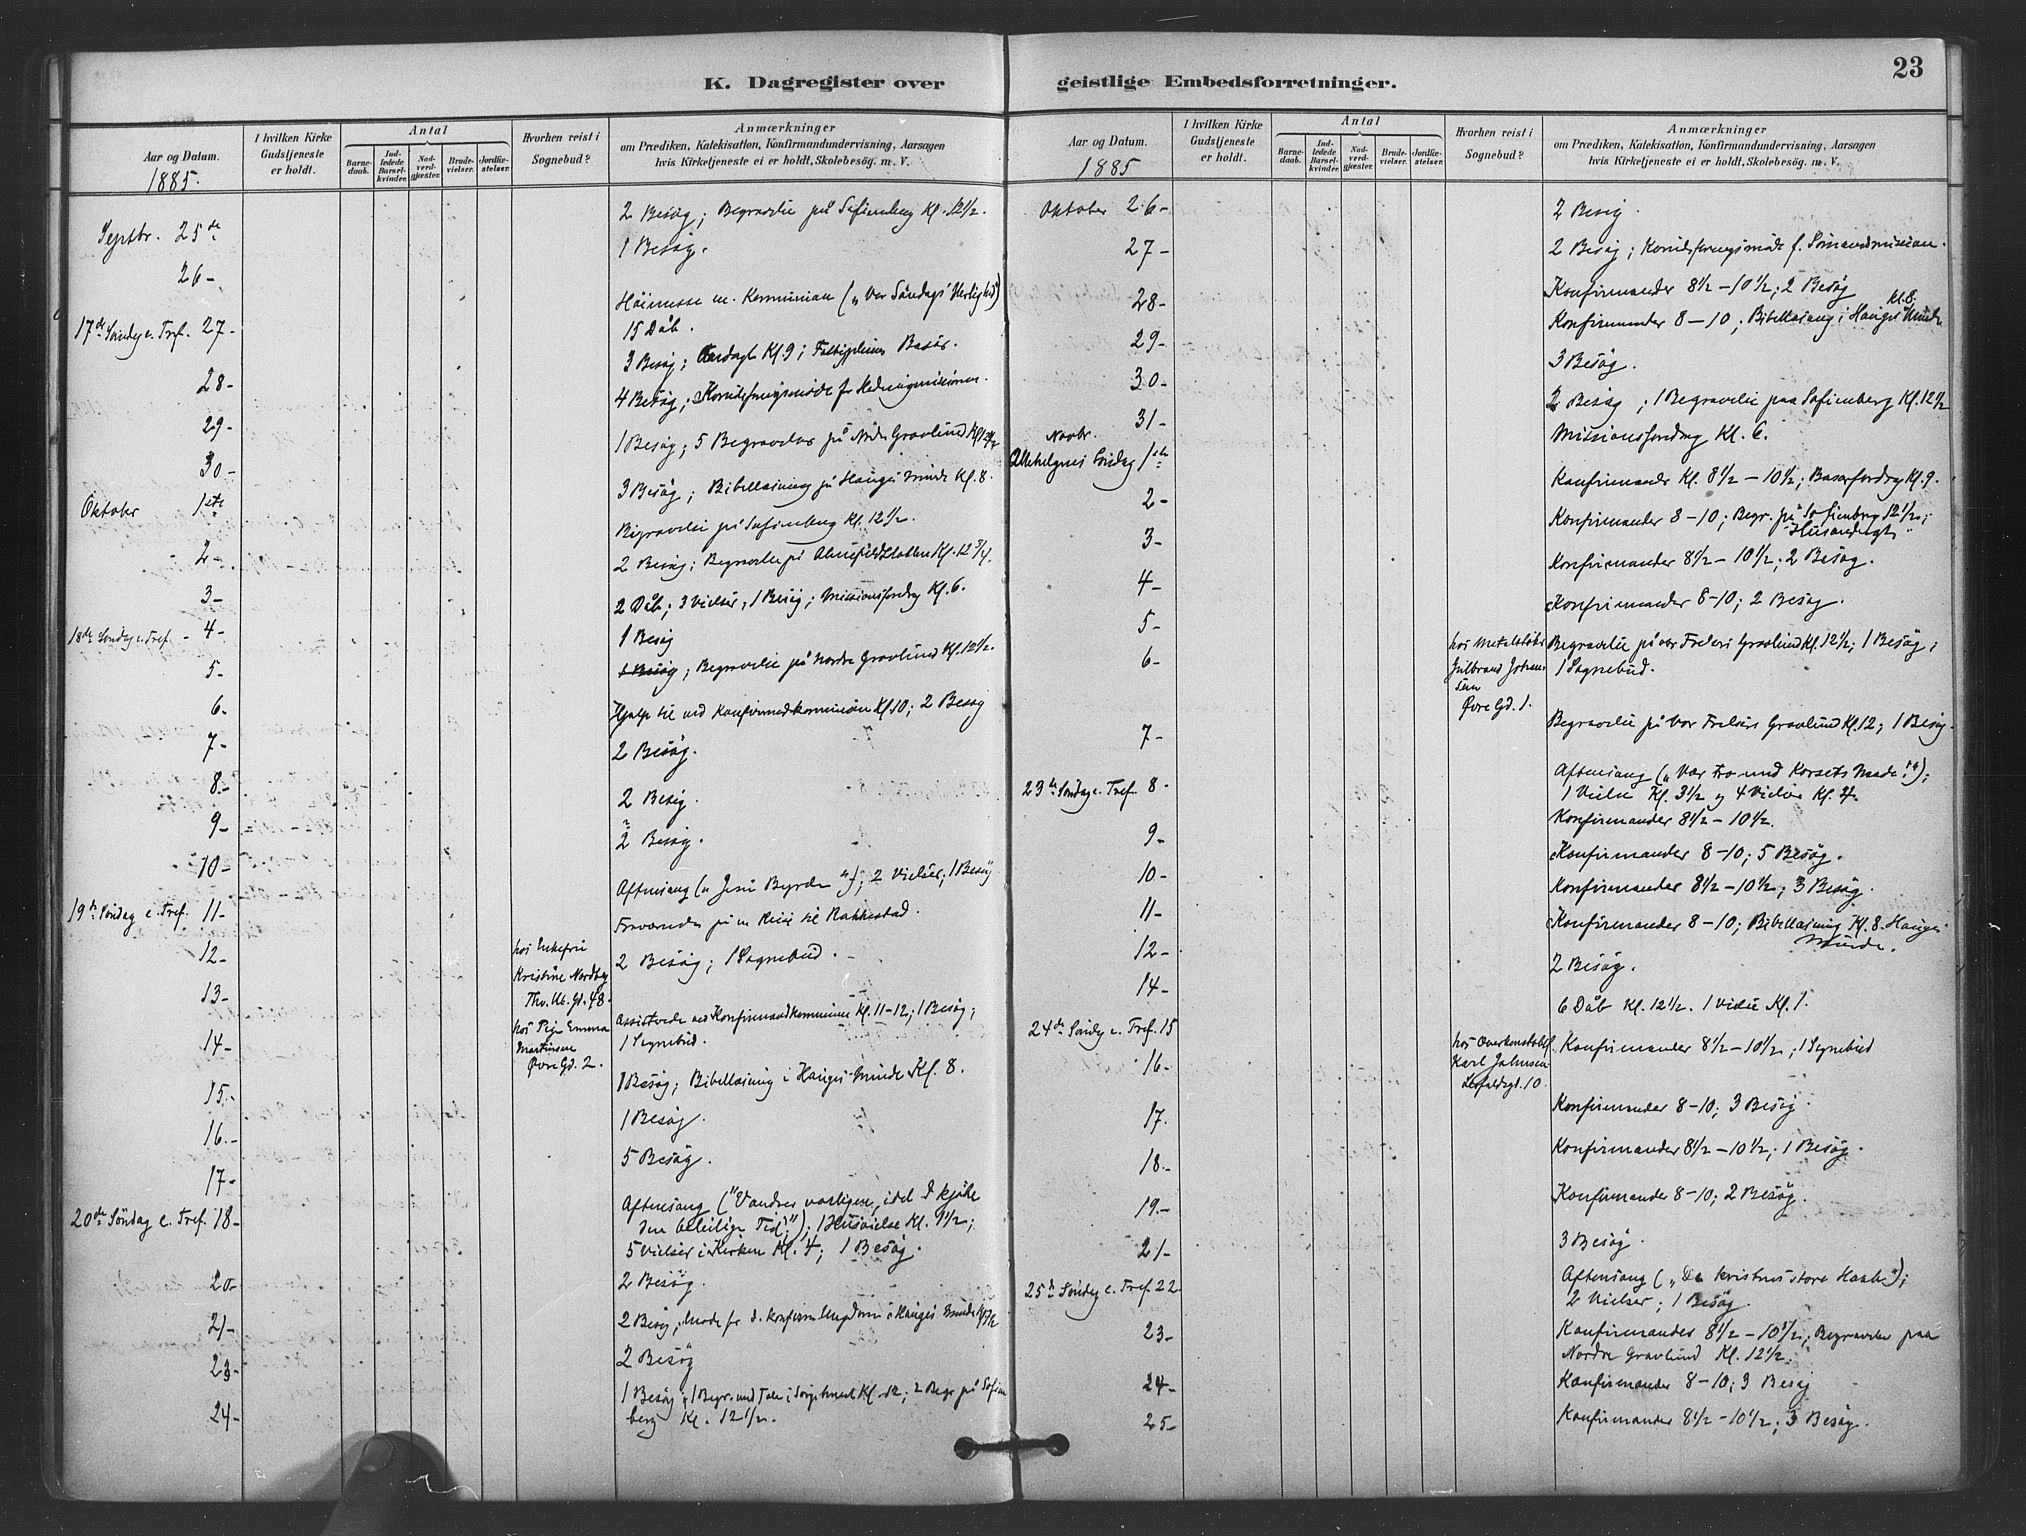 K. Dagregister over
Aar og Datum.
1885.
I hvilken Kirke Gudstjeneste er holdt.
Antal
Barnedaab.
Indledede Barselkvinder.
Nadverdgjæster.
Brudevielser.
Jordfæstelser.
Hvorhen reist i Sognebud?
Anmærkninger
om Prædiken, Katekisation, Konfirmandundervisning, Aarsagen
hvis Kirketjeneste ei er holdt, Skolebesög. m. V.
Septbr. 25de 2 Besøg; Begravelse på Sofienberg Kl. 12½.
26- 1 Besøg.
17de Søndag e. Tref. 27- Höimesse m. Kommunion („Vor Søndags Herlighed")
15 Dåb.
28- 3 Besøg; Andagt Kl. 9 i Basar.
29- 4 Besøg; for Hedningmissionen.
30- 1 Besøg; 5 Begravelser på Nordre Gravlund Kl. 12½
Oktober 1ste 3 Besøg; Bibellæsning på Hauges Minde Kl. 8.
2- Begravelse på Sofienberg Kl. 12½.
3- 2 Besøg; Begravelse på Kl. 12¾.
18de Søndag e. Tref. - 4- 2 Dåb; 3 Vielser, 1 Besøg; Missionsforedrag Kl. 6.
5- 1 Besøg
6- 1 Besøg; Begravelse på Nordre Gravlund Kl. 12½.
7- Hjalp til ved Konfirmandkommunion Kl. 10; 2 Besøg
8- 2 Besøg.
9- 2 Besøg.
10- 2 Besøg.
19de Søndag e. Tref. 11- Aftensang („Jesu Byrde"); 2 Vielser; 1 Besøg
12- Fraværende på en Reise til Rakkestad.
13- hos Enkefru
Kristine Nordby
Thv. M. Gd. 48.
2 Besøg; 1 Sognebud.
14- hos Pige Emma
Martinsen
Øvre Gd. 2.
Assisterede ved Konfirmandkommunion Kl. 11-12; 1 Besøg;
1 Sognebud.
15- 1 Besøg; Bibellæsning i Hauges Minde Kl. 8.
16- 1 Besøg.
17- 5 Besøg.
20de Søndag e. Tref. 18- Aftensang ("Vandrer varligen, idet I kjøbe
den beleilige Tid"); 1 Husvielse Kl. 9½;
5 Vielser i Kirken Kl. 4; 1 Besøg.
20- 2 Besøg.
21- 2 Besøg; Møde for d. konfirm. Ungdom i Hauges Minde
23- 2 Besøg
24- 1 Besøg; 1 Begr. med Tale i Kl. 12; 2 Begr. på Sofien
berg Kl. 12½.
geistlige Embedsforretninger.
23
Aar og Datum.
1885
I hvilken Kirke Gudstjeneste er holdt.
Antal
Barnedaab.
Indledede Barselkvinder.
Nadverdgjæster.
Brudevielser.
Jordfæstelser.
Hvorhen reist i Sognebud?
Anmærkninger
om Prædiken, Katekisation, Konfirmandundervisning, Aarsagen
hvis Kirketjeneste ei er holdt, Skolebesög. m. V.
Oktober 26- 2 Besøg.
27- 2 Besøg; f. Sömandsmission.
28- Konfirmander 8½-10½; 2 Besøg
29- Konfirmander 8-10; Bibellæsning i Hauges Minde Kl. 8.
30- 3 Besøg.
31- 2 Besøg; 1 Begravelse paa Sofienberg Kl. 12½
Novbr.
Allehelgens Søndag 1ste Missionsforedrag Kl. 6.
2- Konfirmander Kl. 8½-10½; Basarforedrag Kl. 9.
3- Konfirmander 8-10; Begr. på Sofienberg 12½;
Husandagt
4- Konfirmander 8½-10½; 2 Besøg.
5- Konfirmander 8-10; 2 Besøg.
6- hos
Gulbrand Johan
sen
Øvre Gd. 1.
Begravelse på vor Frelsers Gravlund Kl. 12½; 1 Besøg;
1 Sognebud.
7- Begravelse på Vor Frelsers Gravlund Kl. 12; 1 Besøg.
23de Søndag e. Tref. 8- Aftensang („Vær tro mod Korsets Mærke!");
1 Vielse Kl. 3½ og 4 Vielser Kl. 4.
9- Konfirmander 8½-10½.
10- Konfirmander 8-10; 5 Besøg.
11- Konfirmander 8½-10½; 3 Besøg.
12- Konfirmander 8-10; Bibellæsning Kl. 8. Hauges
Minde.
14- 2 Besøg.
24de Søndag e. Tref. 15 6 Dåb Kl. 12½. 1 Vielse Kl. 1.
16- hos Overkonstabel
Karl Johnsen
10.
Konfirmander 8½-10½; 1 Sognebud
17. Konfirmander 8-10; 3 Besøg.
18.- Konfirmander 8½-10½; 1 Besøg.
19.- Konfirmander 8-10; 2 Besøg.
21- 3 Besøg.
25de Søndag e. Tref. 22 Aftensang („De kristnes store Haab");
2 Vielser; 1 Besøg.
23- Konfirmander 8½-10½; Begravelse paa
Nordre Gravlund Kl. 12½.
24- Konfirmander 8-10; 3 Besøg
25- Konfirmander 8½-10½; 3 Besøg.